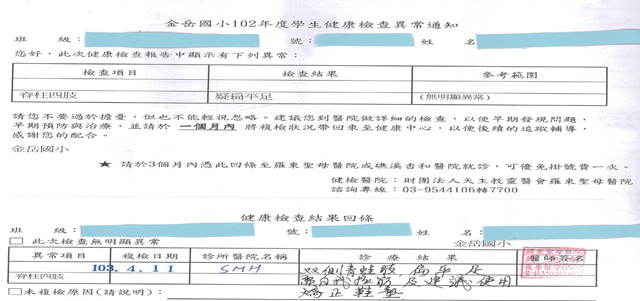 金岳國小102年度學生健康檢查異常通知
班 級: 號: 姓 名
您好，此次健康檢查報告中顯示有下列異常：
檢查項目 檢查結果 參考範圍
脊柱四肢 疑扁平足 (無明顯異常)
請您不要過於擔憂，但也不能輕視忽略。建議您到醫院做詳細的檢查，以便早期發現問題，
早期預防與治療，並請於 一個月內 將複檢狀況帶回來至健康中心，以便後續的追蹤輔導，
感謝您的配合。
金岳國小
★ 請於3個月內憑此回條至羅東聖母醫院或礁溪杏和醫院就診，可優免掛號費一次。
健檢醫院：財團法人天主教靈醫會羅東聖母醫院
諮詢專線：03-9544106轉7700
健康檢查結果回條
班 級: 號: 姓 名:
□ 此次檢查無明顯異常 金岳國小
異常項目 複檢日期 診所醫院名稱 診療結果 醫師簽名
脊柱四肢 103.4.11 SMH 双側青蛙肢 扁平足
及建議使用
矯正鞋墊
□未複檢原因(請說明)：